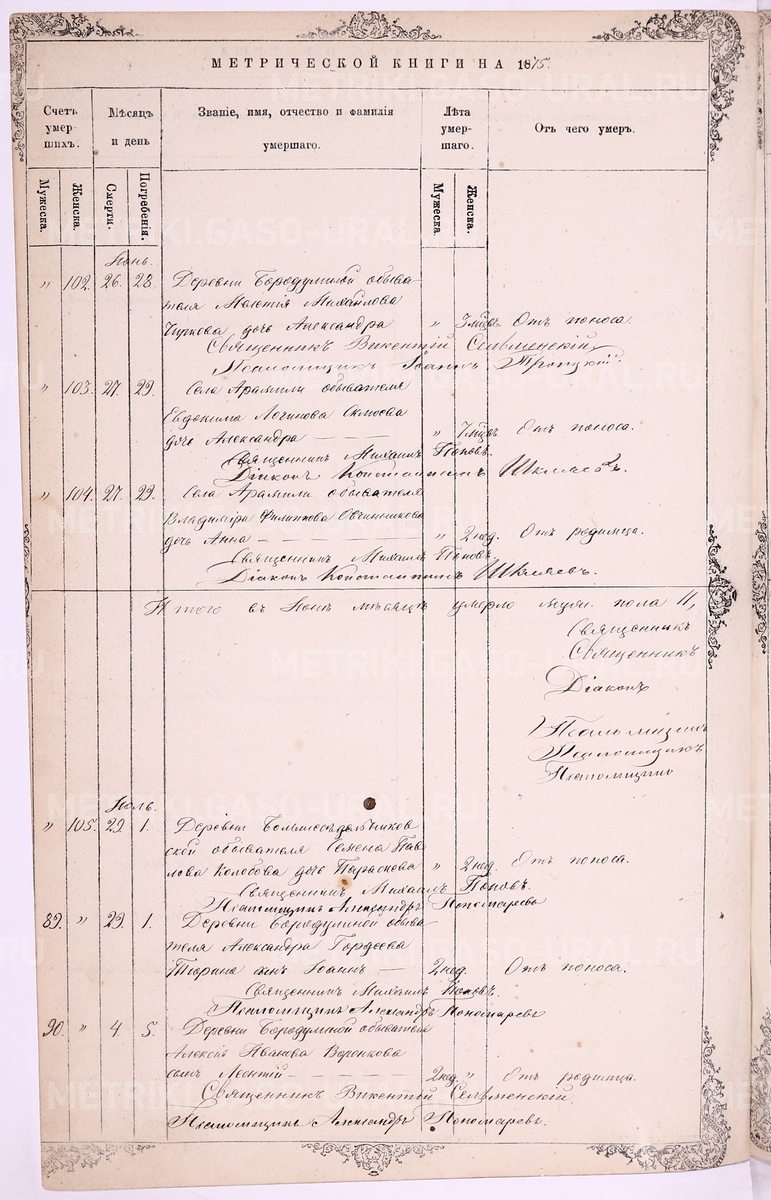 МЕТРИЧЕСКОЙ КНИГИ НА 1875.
Счетъ умер шихъ.
Мѣсяцъ и день
Званіе, имя, отчество и фамилія умершаго.
Лѣта умер- шаго.
Отъ чего умеръ.
Мужеска.
Женска.
Смерти.
Погребенія.
Мужеска.
Женска.
Іюнь.
„ 102. 26. 28. Деревни Бородулиной обыва-
теля Михайлова
дочь Александра „ 3 мѣсъ. Отъ поноса.
Священникъ Викентій
Псаломщикъ Іоаннъ Троицкій.
„ 103. 27. 29. Села Арамили обывателя
Евдокима Логинова
дочь Александра — — — „ 7 мѣсъ. Отъ поноса.
Священникъ Михаилъ Поповъ.
Діаконъ Константинъ Шкляевъ.
„ 104. 27. 29. Села Арамили обывателя
Владиміра Филиппова Овчинникова
дочь Анна — — — „ 2 нед. Отъ родимца.
Священникъ Михаилъ Поповъ.
Діаконъ Константинъ Шкляевъ.
Итого въ Іюнѣ мѣсяцѣ умерло муж. пола 11,
Священникъ
Священникъ
Діаконъ
Псаломщикъ
Псаломщикъ
Псаломщикъ
Іюль.
„ 105. 29. 1. Деревни
ской обывателя Семена Пав
лова Колобова дочь Параскева „ 2 нед. Отъ поноса.
Священникъ Михаилъ Поповъ.
Псаломщикъ Александръ Пономаревъ
89. „ 29. 1. Деревни Бородулиной обыва-
теля Александра Гордеева
Тюрина сынъ Іоаннъ — 2 нед. Отъ поноса.
Священникъ Михаилъ Поповъ.
Псаломщикъ Александръ Пономаревъ
90. „ 4 5. Деревни Бородулиной обывателя
Алексѣя Иванова
сынъ Леонтій — — — 2 нед. „ Отъ родимца.
Священникъ Викентій
Псаломщикъ Александръ Пономаревъ.